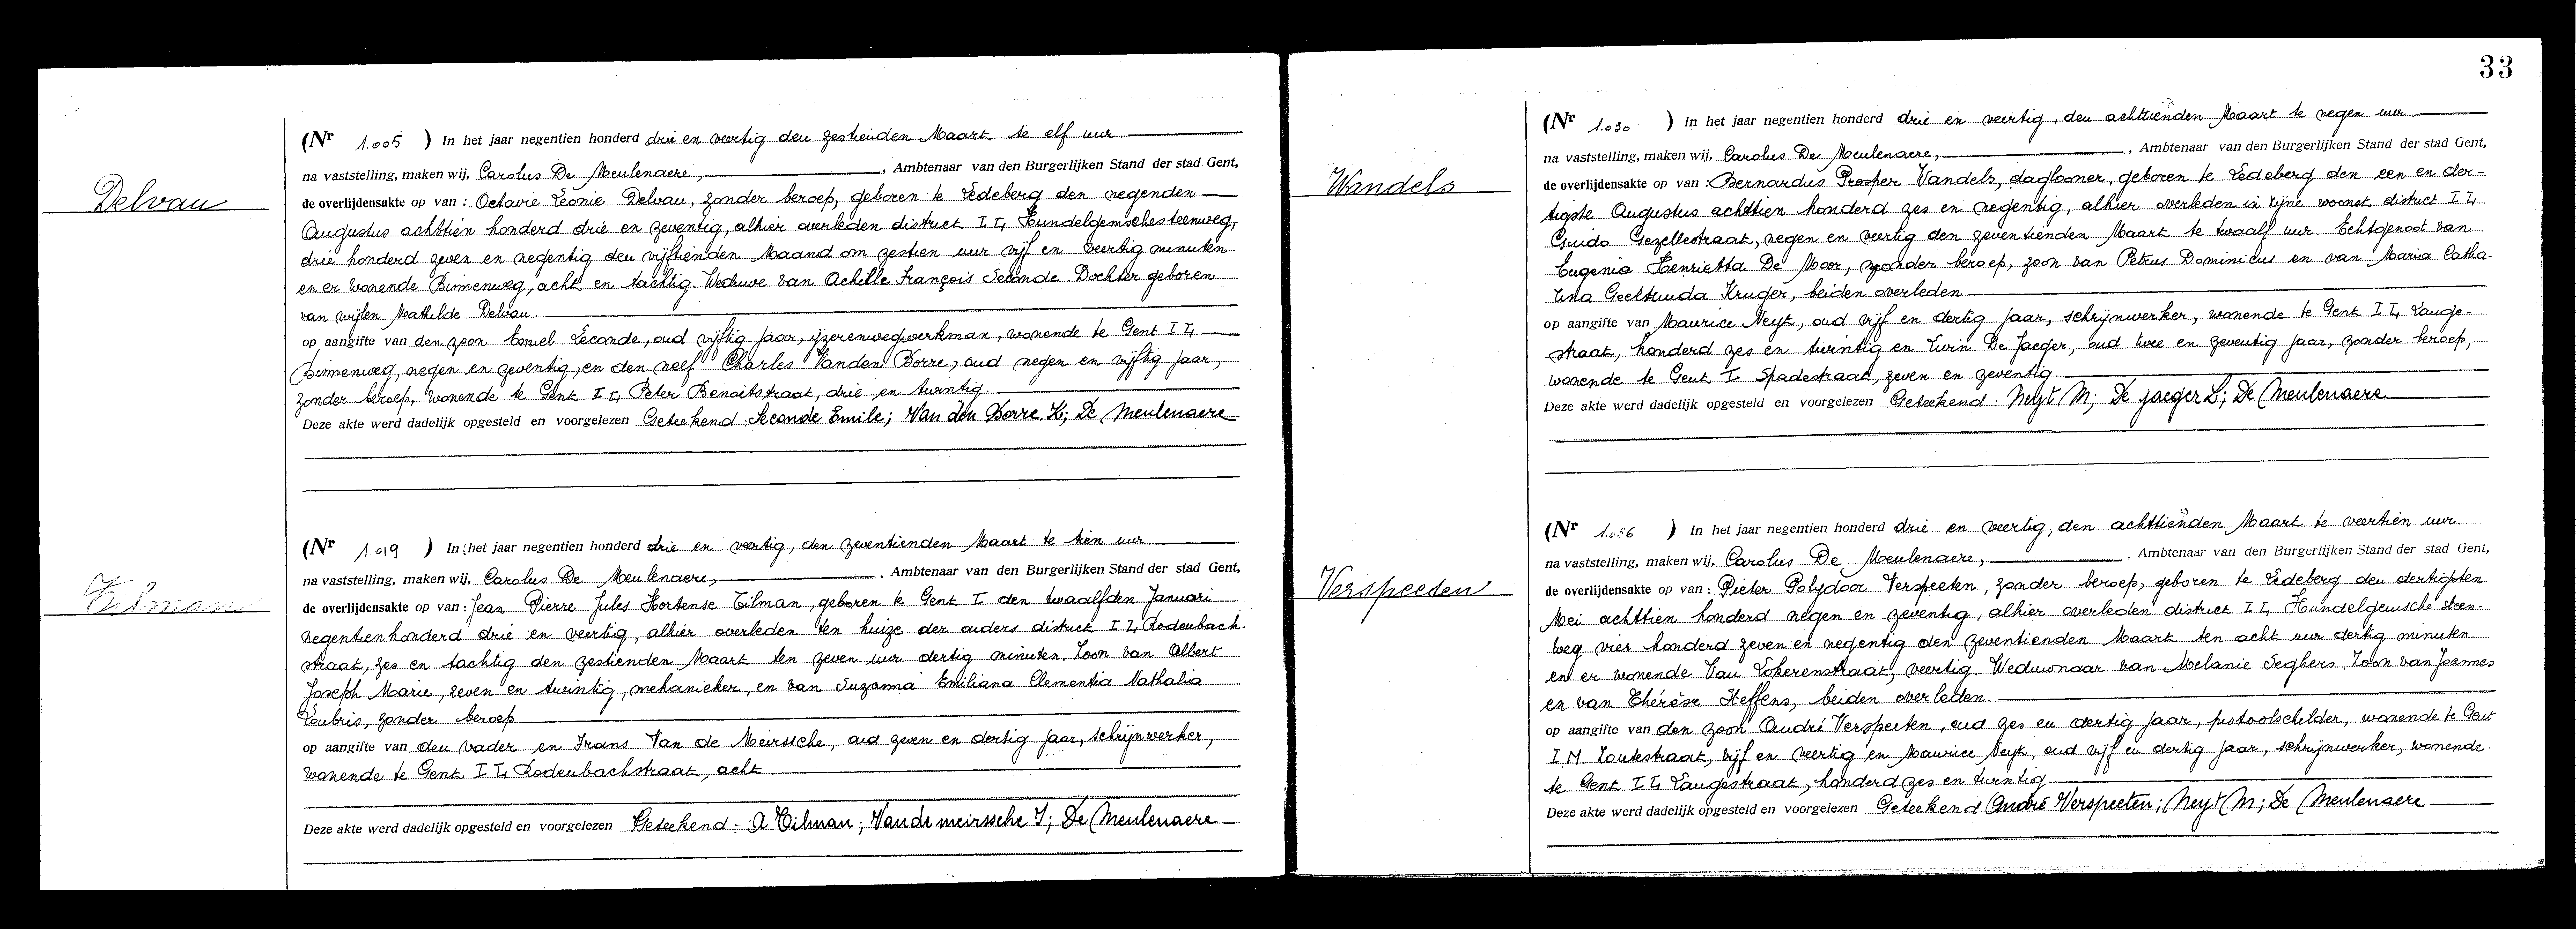 Delvau
(Nr 1.005 ) In het jaar negentien honderd drie en veertig den zestienden Maart te elf uur
na vaststelling, maken wij, Carolus De Meulenaere, , Ambtenaar van den Burgerlijken Stand der stad Gent,
de overlijdensakte op van : Octavie Leonie Delvau, zonder beroep, geboren te Ledeberg den negenden
Augustus achttien honderd drie en zeventig, alhier overleden district I L, Hundelgemschesteenweg,
drie honderd zeven en negentig den vijftienden Maand om zestien uur vijf en veertig minuten
en er wonende Binnenweg, acht en tachtig. Weduwe van Achille François Seconde Dochter geboren
van wijlen Mathilde Delvau.
op aangifte van den zoon Emiel Leconde, oud vijftig jaar, ijzerenwegwerkman, wonende te Gent I L,
Binnenweg, negen en zeventig, en den neef Charles Vanden Borre, oud negen en vijftig jaar,
zonder beroep, wonende te Gent I L, Peter Benoitstraat, drie en twintig.
Deze akte werd dadelijk opgesteld en voorgelezen Geteekend : Seconde Emile; Van den Borre K; De Meulenaere
Tilman
(Nr 1.019 ) In het jaar negentien honderd drie en veertig, den zeventienden Maart te tien uur
na vaststelling, maken wij, Carolus De Meulenaere, , Ambtenaar van den Burgerlijken Stand der stad Gent,
de overlijdensakte op van : Jean Pierre Jules Hortense Tilman, geboren te Gent I den twaalfden Januari
negentienhonderd drie en veertig, alhier overleden ten huize der ouders district I L, Rodenbach-
straat, zes en tachtig den zestienden Maart ten zeven uur dertig minuten. Zoon van Albert
Joseph Marie, zeven en twintig, mekanieker, en van Suzanna Emiliana Clementia Nathalia
Loubris, zonder beroep
op aangifte van den vader en Frans Van de Meirssche, oud zeven en dertig jaar, schrijnwerker,
wonende te Gent I L, Rodenbachstraat, acht
Deze akte werd dadelijk opgesteld en voorgelezen Geteekend - A Tilman; Vandemeirssche F; De Meulenaere
33
Wandels
(Nr 1.030 ) In het jaar negentien honderd drie en veertig, den achttienden Maart te negen uur
na vaststelling, maken wij, Carolus De Meulenaere, , Ambtenaar van den Burgerlijken Stand der stad Gent,
de overlijdensakte op van : Bernardus Prosper Wandels, daglooner, geboren te Ledeberg den een en der-
tigste Augustus achttien honderd zes en negentig, alhier overleden in zijne woonst district I L,
Guido Gezellestraat, negen en veertig den zeventienden Maart te twaalf uur. Echtgenoot van
Eugenia Henrietta De Moor, zonder beroep, zoon van Petrus Dominicus en van Maria Catha-
rina Geertruida Kruger, beiden overleden
op aangifte van Maurice Neyt, oud vijf en dertig jaar, schrijnwerker, wonende te Gent I L, Lange-
straat, honderd zes en twintig en Livin De Jaeger, oud twee en zeventig jaar, zonder beroep,
wonende te Gent I Spadestraat, zeven en zeventig.
Deze akte werd dadelijk opgesteld en voorgelezen Geteekend : Neyt M; De jaeger L; De Meulenaere
Verspeeten
(Nr 1.036 ) In het jaar negentien honderd drie en veertig, den achttienden Maart te veertien uur.
na vaststelling, maken wij, Carolus De Meulenaere, , Ambtenaar van den Burgerlijken Stand der stad Gent,
de overlijdensakte op van : Pieter Polydoor Verspeeten, zonder beroep, geboren te Ledeberg den dertigsten
Mei achttien honderd negen en zeventig, alhier overleden district I L, Hundelgemsche steen-
weg vier honderd zeven en negentig den zeventienden Maart ten acht uur dertig minuten
en er wonende Van Lokerenstraat, veertig. Weduwnaar van Melanie Seghers. Zoon van Joannes
en van Thérèse Steffens, beiden overleden
op aangifte van den zoon André Verspeeten, oud zes en dertig jaar, pistoolschilder, wonende te Gent
I M Zoutestraat, vijf en veertig en Maurice Neyt, oud vijf en dertig jaar, schrijnwerker, wonende
te Gent I L, Langestraat, honderd zes en twintig.
Deze akte werd dadelijk opgesteld en voorgelezen Geteekend André Verspeeten; Neyt M; De Meulenaere